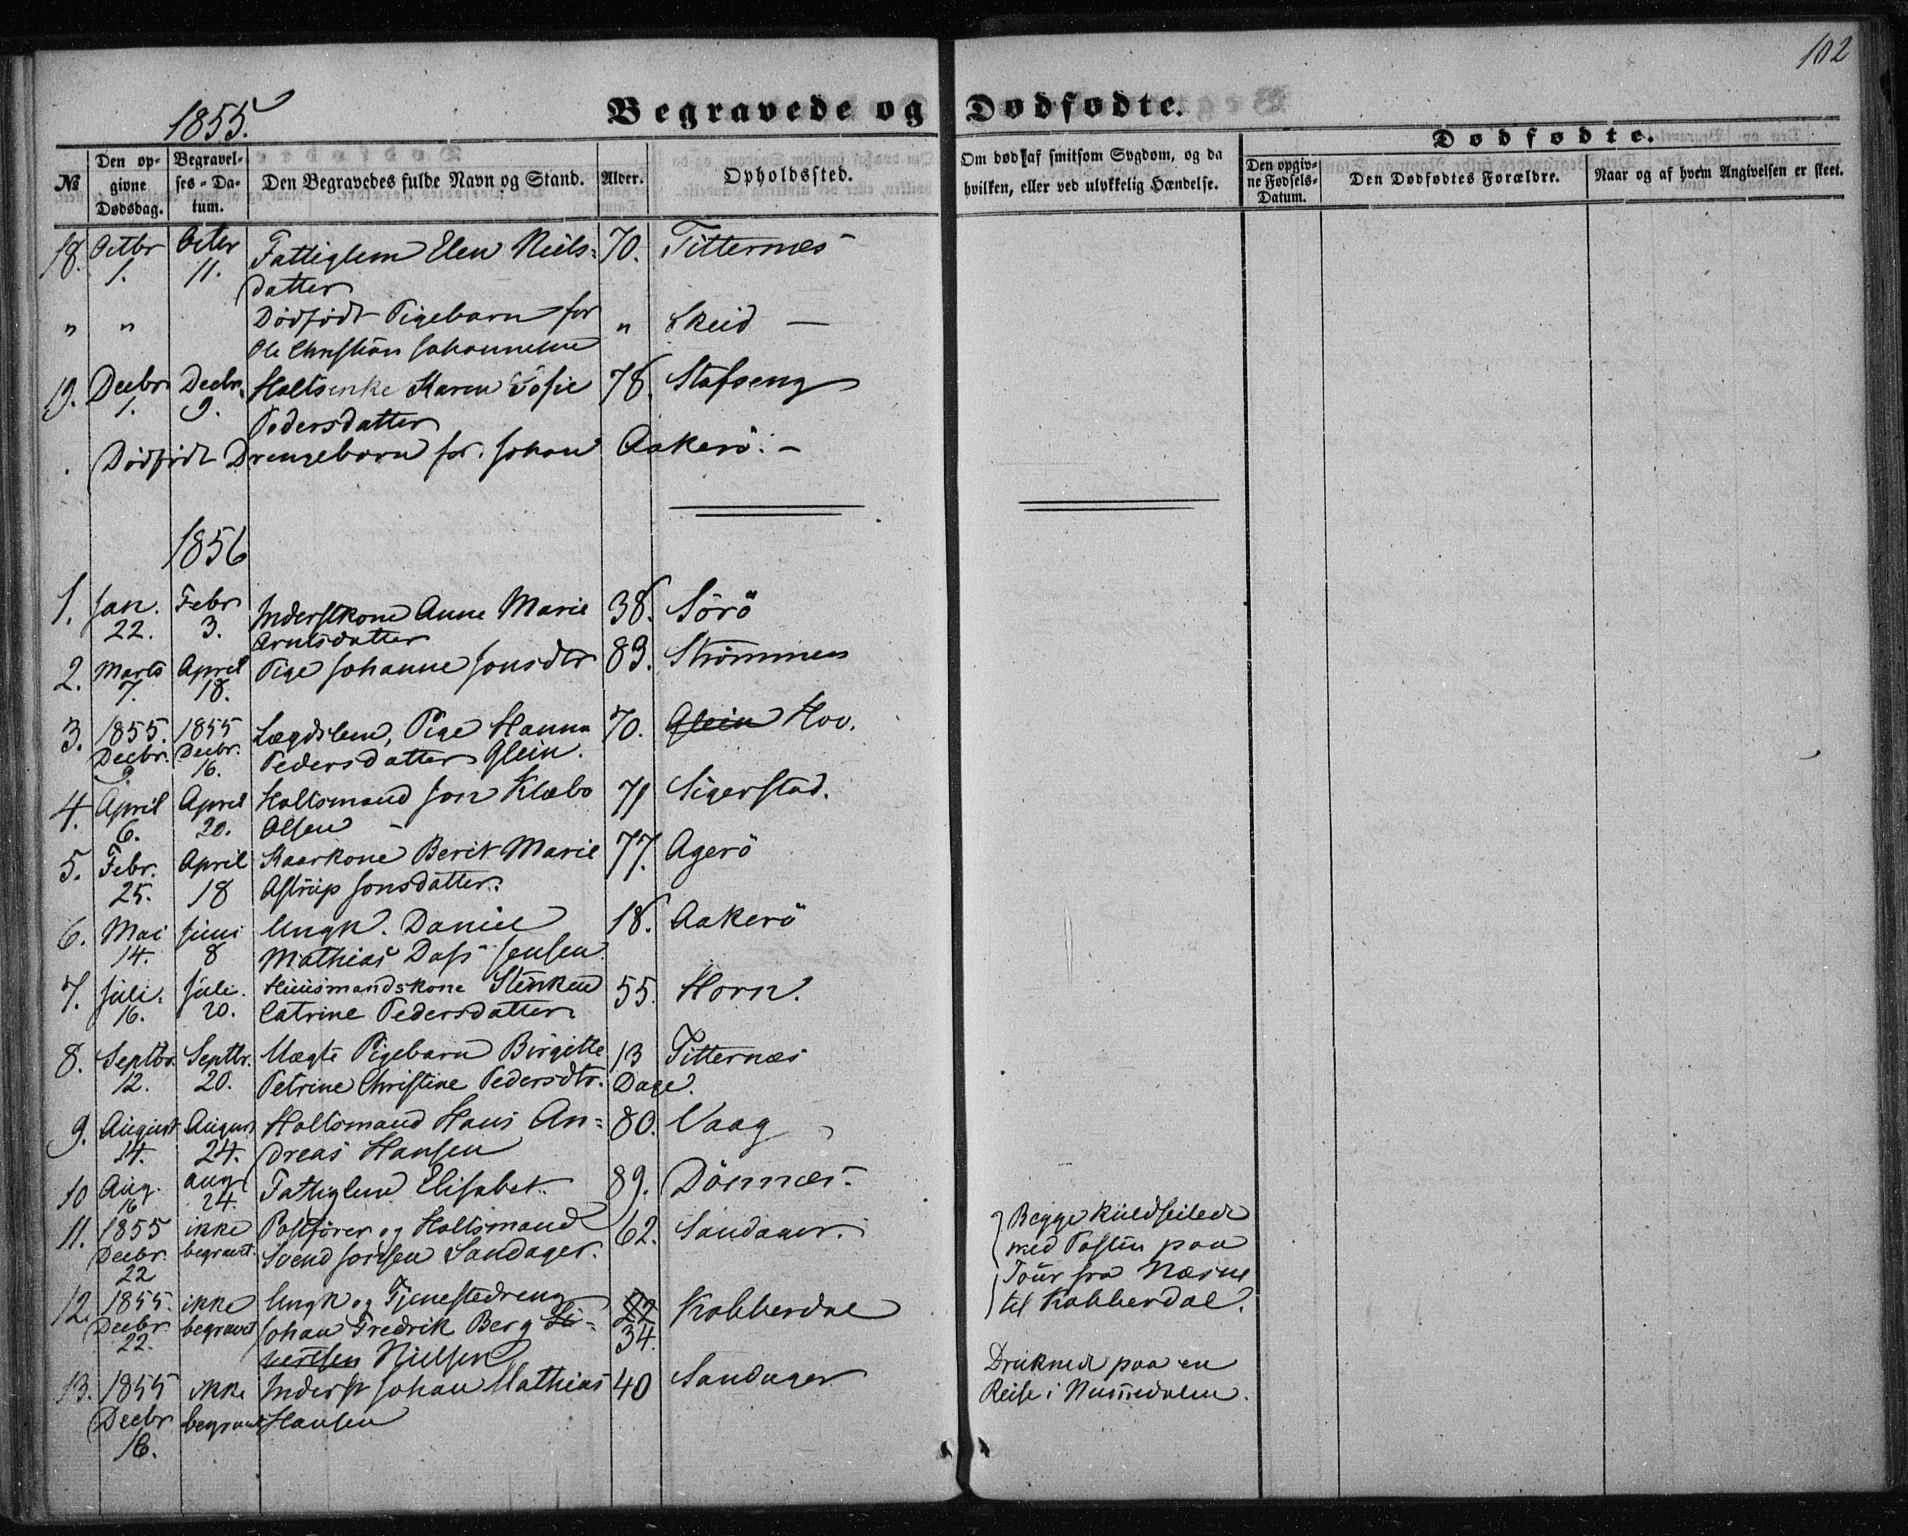 102
1855.
Begravede og Dødfødte.
Dødfødte.
№
Den op-
givne
Dødsdag.
Begravel-
ses-Da-
tum.
Den Begravedes fulde Navn og Stand.
Alder.
Opholdssted.
Om død af smitsom Sygdom, og da
hvilken, eller ved ulykkelig Hændelse.
Den opgiv-
ne Fødsels-
Datum.
Den Dødfødtes Forældre.
Naar og af hvem Angivelsen er skeet.
18. Octbr Octbr Fattiglem Elen Niels- 70. Titternæs
1. 11. datter
" " Dødfødt Pigebarn for " Skeid —
Ole Christian Johannesen
19. Decbr Decbr. Holtsenke Karen Sofie 78. Stafseng
1. 9. Pedersdatter
Dødfødt Drengebarn for Johan Aakerö. —
1856
1. Jan. Febr Inderstkone Anne Marie 38. Sörö
22. 3. Arntsdatter
2. Marts April Pige Johanne Jonsdtr 83. Strömmen
7. 18.
3. 1855. 1855 Lægdslem, Pige Hanna 70. Glein Hov.
Decbr. Decbr. Pedersdatter Glein.
9. 16.
4. April April Holtsmand Jon Klæbo 71 Sigerstad.
6. 20. Olsen
5. Febr. April Kaarkone Berit Marie 77. Agerö
25. 18 Astrüp Jonsdatter.
6. Mai Juni Ungk. Daniel 18. Aakerö
14. 8 Mathias Dass Jensen
7. Juli. Juli. Huusmandskone Stinken 55. Horn.
16. 20. Catrine Pedersdatter
8. Septbr. Septbr. Uægte Pigebarn Birgitte 13 Titternæs
12. 20. Petrine Christine Pedersdtr. Dage.
9. August August Holtsmand Hans An- 80. Vaag
14. 24. dreas Hansen
10 Aug. Aug Fattiglem Elisabet. 89. Dönnæs.
16 24.
11. 1855 ikke Postförer og Holtsmand 62. Sandager. Begge küldseilede
Decbr. begravet. Svend Jonsen Sandager. med Posten paa
22 Tour fra Næsne
12. 1855. ikke Ungk og Tjenestedreng 22 Kobberdal til Kobberdal.
Decbr begravet Johan Fredrik Berg Si- 34.
22. vertsen Nielsen
13. 1855 ikke Inderst Johan Mathias 40 Sandager Druknede paa en
Decbr begravet Hansen Reise i Numedalen.
16.